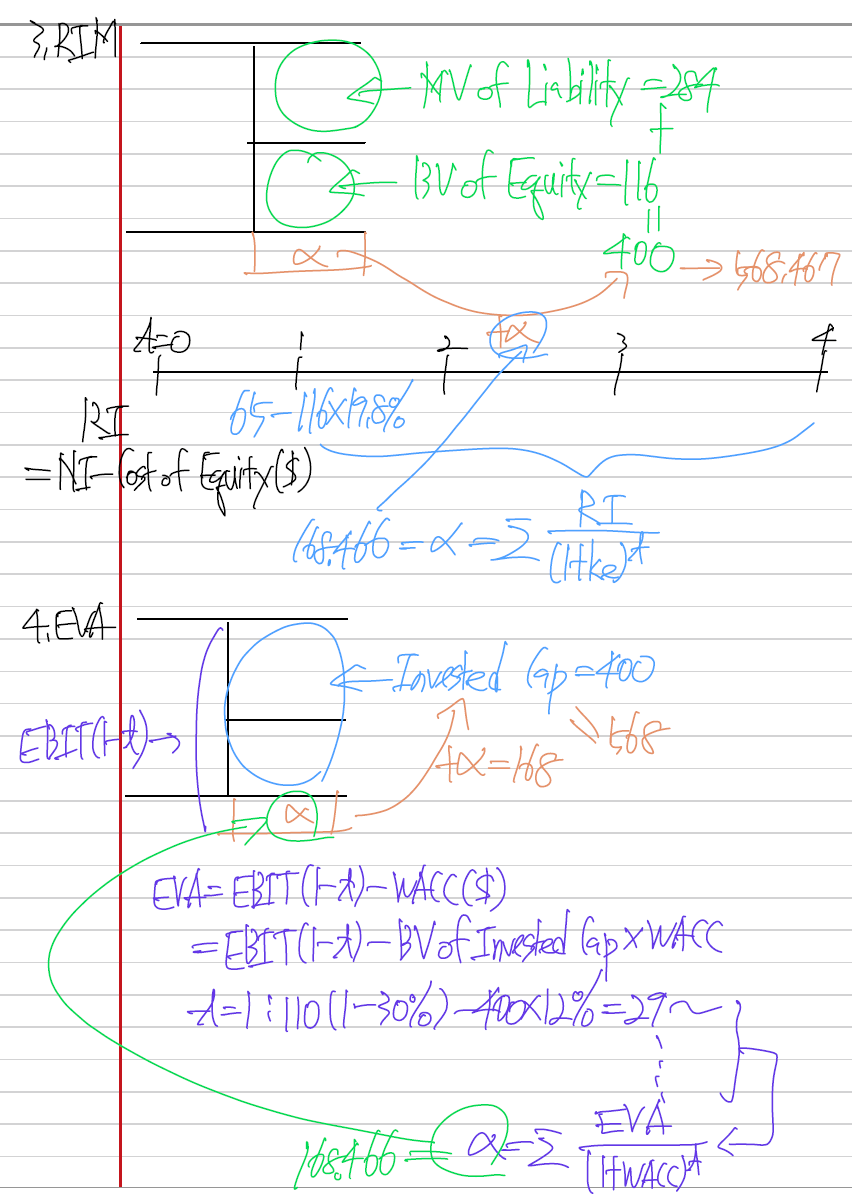 3, RIM
← MV of Liability = 284
+
← BV of Equity = 116
||
α
400 → 568.467
+α
t=0 1 2 3 4
65-116×19.8%
RI
= NI - Cost of Equity($)
168.466 = α = Σ RI/(1+ke)^t
4, EVA
← Invested Cap = 400
EBIT(1-t) →
+α = 168
568
α
EVA = EBIT(1-t) - WACC($)
= EBIT(1-t) - BV of Invested Cap × WACC
t=1 : 110(1-30%) - 400×12% = 29 ~
168.466 = α = Σ EVA/(1+WACC)^t